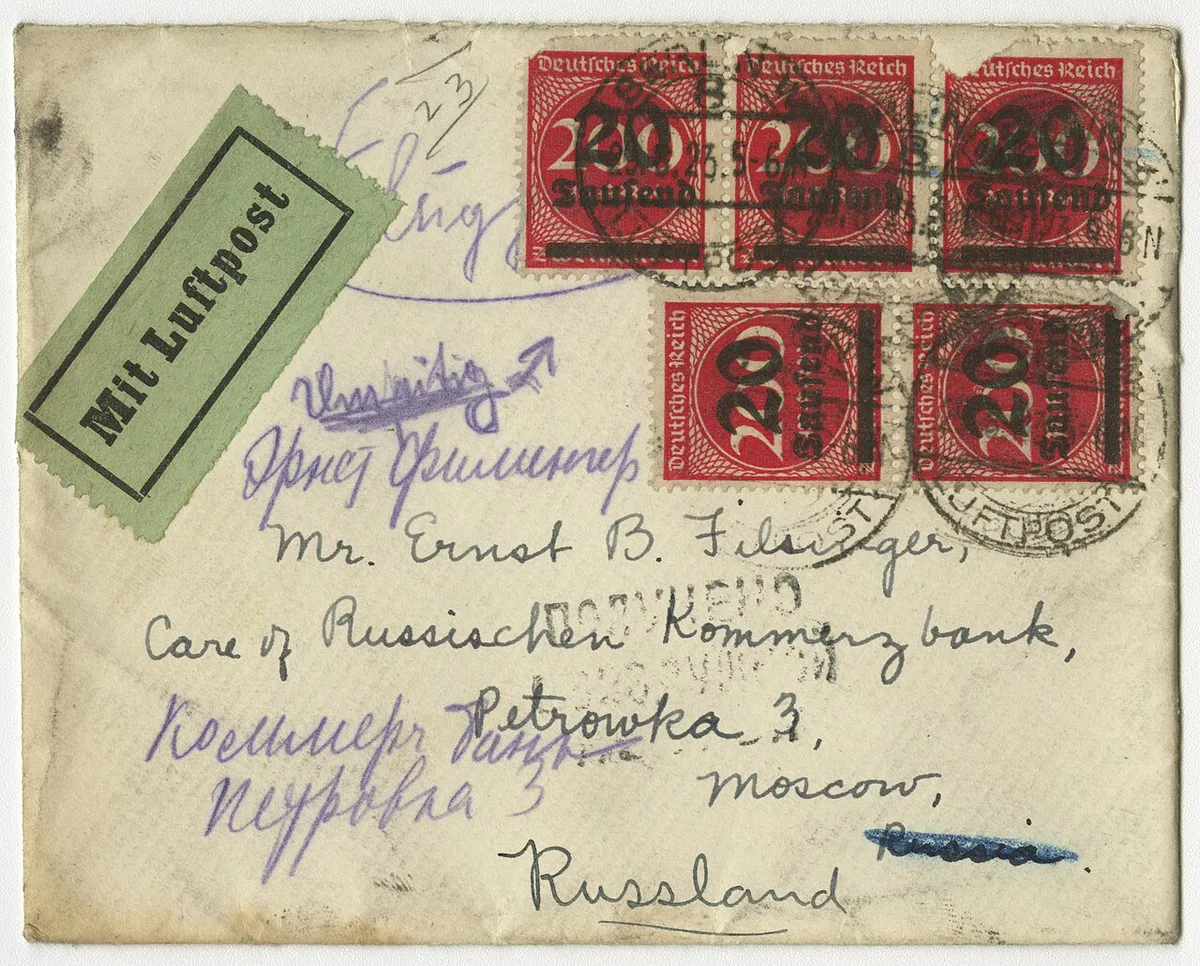 23
Deutsches Reich
20
Tausend
Deutsches Reich
20
Tausend
Deutsches Reich
20
Tausend
Mit Luftpost
Deutsches Reich
200
20
Tausend
Deutsches Reich
20
Tausend
LUFTPOST
Эрнст Филингер
Mr. Ernst B. Filsinger,
Care of Russischen Kommerzbank,
Petrowka 3,
Коммерч банк
Петровка 3
Moscow,
Russia
Russland